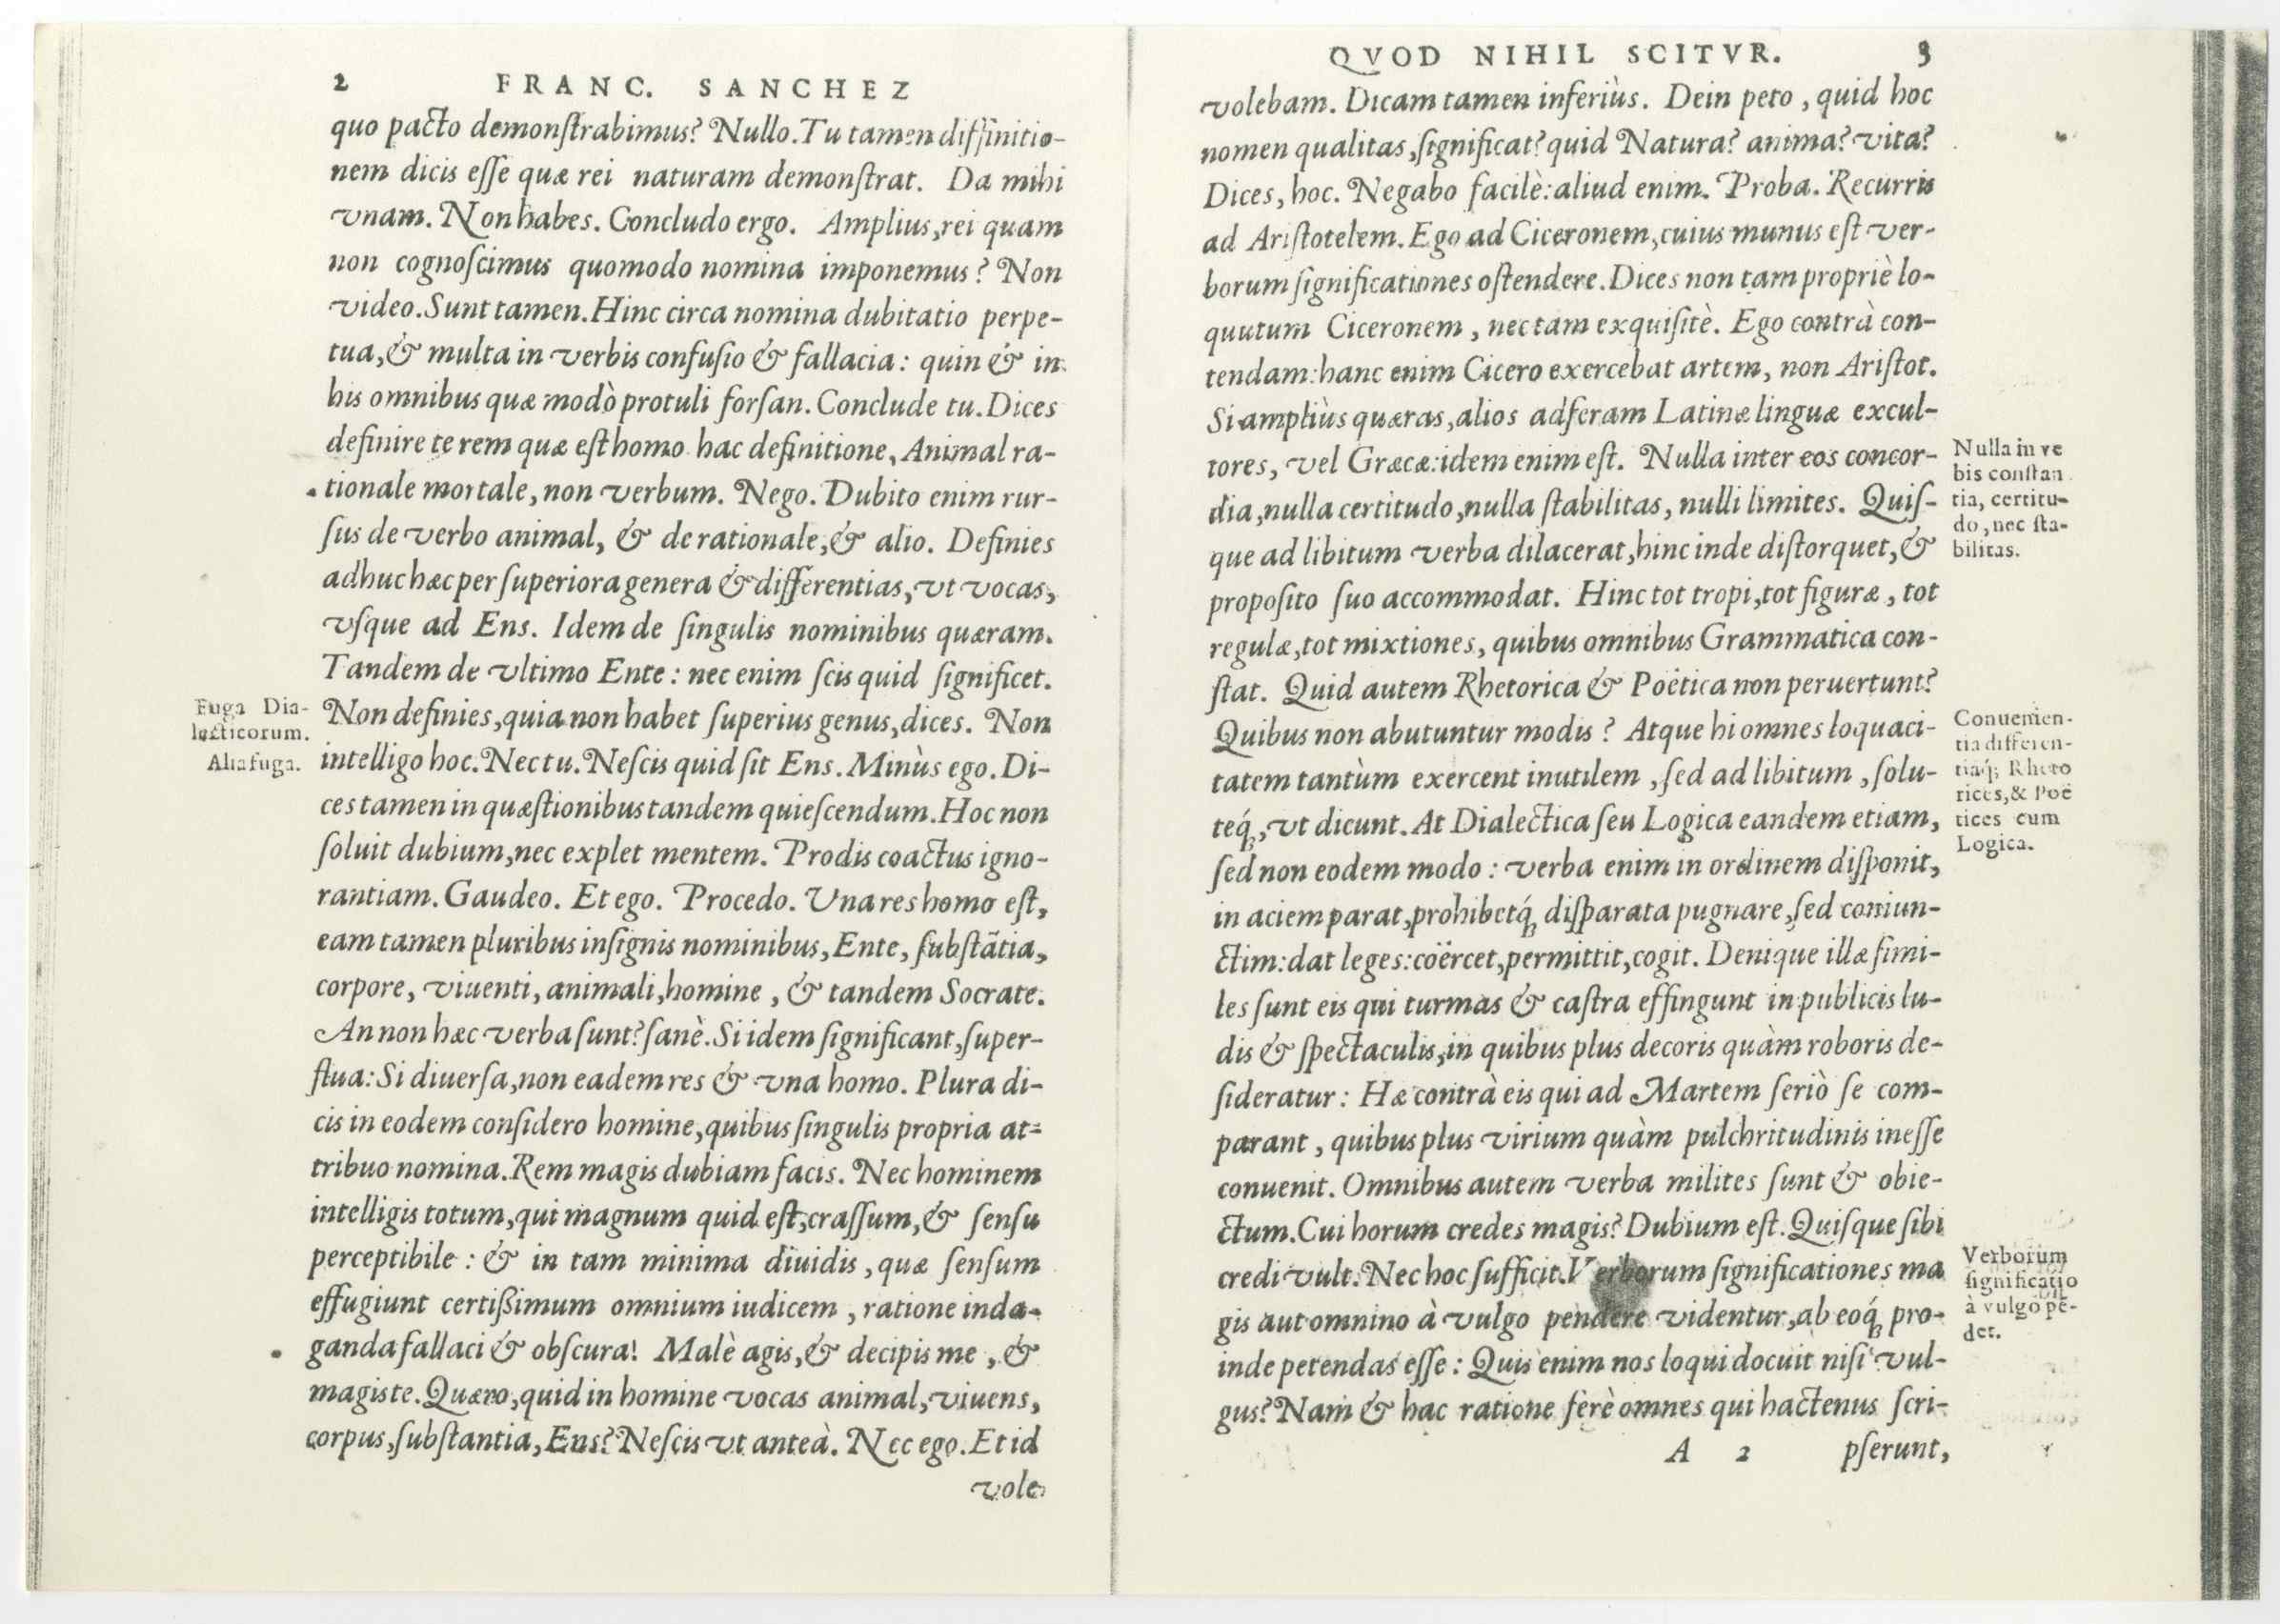 2 FRANC. SANCHEZ
quo pacto demonſtrabimus? Nullo. Tu tamen diffinitio-
nem dicis eſſe quæ rei naturam demonſtrat. Da mihi
vnam. Non habes. Concludo ergo. Amplius, rei quam
non cognoſcimus quomodo nomina imponemus? Non
video. Sunt tamen. Hinc circa nomina dubitatio perpe-
tua, & multa in verbis confuſio & fallacia: quin & in
his omnibus quæ modò protuli forſan. Conclude tu. Dices
definire te rem quæ eſt homo hac definitione, Animal ra-
tionale mortale, non verbum. Nego. Dubito enim rur-
ſus de verbo animal, & de rationale, & alio. Definies
adhuc hæc per ſuperiora genera & differentias, vt vocas,
vſque ad Ens. Idem de ſingulis nominibus quæram.
Tandem de vltimo Ente: nec enim ſcis quid ſignificet.
Non definies, quia non habet ſuperius genus, dices. Non
intelligo hoc. Nec tu. Neſcis quid ſit Ens. Minùs ego. Di-
ces tamen in quæſtionibus tandem quieſcendum. Hoc non
ſoluit dubium, nec explet mentem. Prodis coactus igno-
rantiam. Gaudeo. Et ego. Procedo. Vna res homo eſt,
eam tamen pluribus inſignis nominibus, Ente, ſubſtãtia,
corpore, viuenti, animali, homine, & tandem Socrate.
An non hæc verba ſunt? ſanè. Si idem ſignificant, ſuper-
flua: Si diuerſa, non eadem res & vna homo. Plura di-
cis in eodem conſidero homine, quibus ſingulis propria at-
tribuo nomina. Rem magis dubiam facis. Nec hominem
intelligis totum, qui magnum quid eſt, craſſum, & ſenſu
perceptibile: & in tam minima diuidis, quæ ſenſum
effugiunt certißimum omnium iudicem, ratione inda-
ganda fallaci & obſcura! Malè agis, & decipis me, &
magis te. Quæro, quid in homine vocas animal, viuens,
corpus, ſubſtantia, Ens? Neſcis vt anteà. Nec ego. Et id
vole
Fuga Dia-
lecticorum.
Alia fuga.
QVOD NIHIL SCITVR. 3
volebam. Dicam tamen inferiùs. Dein peto, quid hoc
nomen qualitas, ſignificat? quid Natura? anima? vita?
Dices, hoc. Negabo facilè: aliud enim. Proba. Recurris
ad Ariſtotelem. Ego ad Ciceronem, cuius munus eſt ver-
borum ſignificationes oſtendere. Dices non tam propriè lo-
quutum Ciceronem, nec tam exquiſitè. Ego contrà con-
tendam: hanc enim Cicero exercebat artem, non Ariſtot.
Si ampliùs quæras, alios adferam Latinæ linguæ excul-
tores, vel Græcæ: idem enim eſt. Nulla inter eos concor-
dia, nulla certitudo, nulla ſtabilitas, nulli limites. Quiſ-
que ad libitum verba dilacerat, hinc inde diſtorquet, &
propoſito ſuo accommodat. Hinc tot tropi, tot figuræ, tot
regulæ, tot mixtiones, quibus omnibus Grammatica con-
ſtat. Quid autem Rhetorica & Poëtica non peruertunt?
Quibus non abutuntur modis? Atque hi omnes loquaci-
tatem tantùm exercent inutilem, ſed ad libitum, ſolu-
teq́;, vt dicunt. At Dialectica ſeu Logica eandem etiam,
ſed non eodem modo: verba enim in ordinem diſponit,
in aciem parat, prohibetq́; diſparata pugnare, ſed coniun-
ctim: dat leges: coërcet, permittit, cogit. Denique illæ ſimi-
les ſunt eis qui turmas & caſtra effingunt in publicis lu-
dis & ſpectaculis, in quibus plus decoris quàm roboris de-
ſideratur: Hæ contrà eis qui ad Martem ſeriò ſe com-
parant, quibus plus virium quàm pulchritudinis ineſſe
conuenit. Omnibus autem verba milites ſunt & obie-
ctum. Cui horum credes magis? Dubium eſt. Quiſque ſibi
credi vult. Nec hoc ſufficit. Verborum ſignificationes ma
gis aut omnino à vulgo pendere videntur, ab eoq́; pro-
inde petendas eſſe: Quis enim nos loqui docuit niſi vul-
gus? Nam & hac ratione ferè omnes qui hactenus ſcri-
A 2 pſerunt,
Nulla in ve
bis conſtan
tia, certitu-
do, nec ſta-
bilitas.
Conuenien-
tia differen-
tiaq́; Rheto
rices, & Poë
tices cum
Logica.
Verborum
ſignificatio
à vulgo pē-
det.